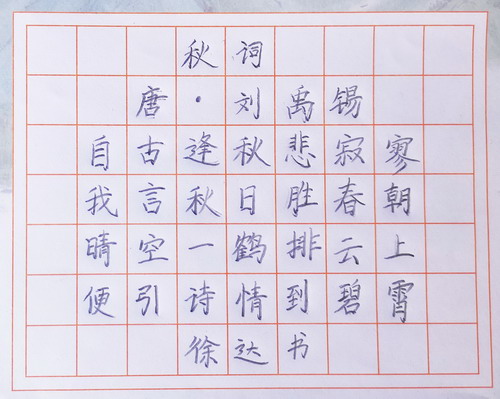 秋词
唐·刘禹锡
自古逢秋悲寂寥
我言秋日胜春朝
晴空一鹤排云上
便引诗情到碧霄
徐达书